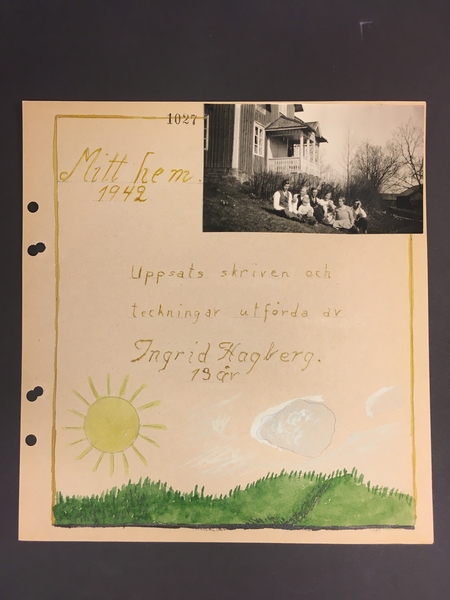 1027
Mitt hem.
1942
Uppsats skriven och
teckningar utförda av
Ingrid Hagberg.
19 år